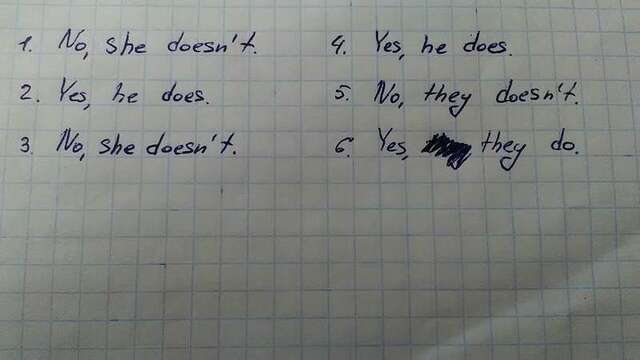 1. No, she doesn't.
2. Yes, he does.
3. No, she doesn't.
4. Yes, he does.
5. No, they doesn't.
6. Yes, they do.